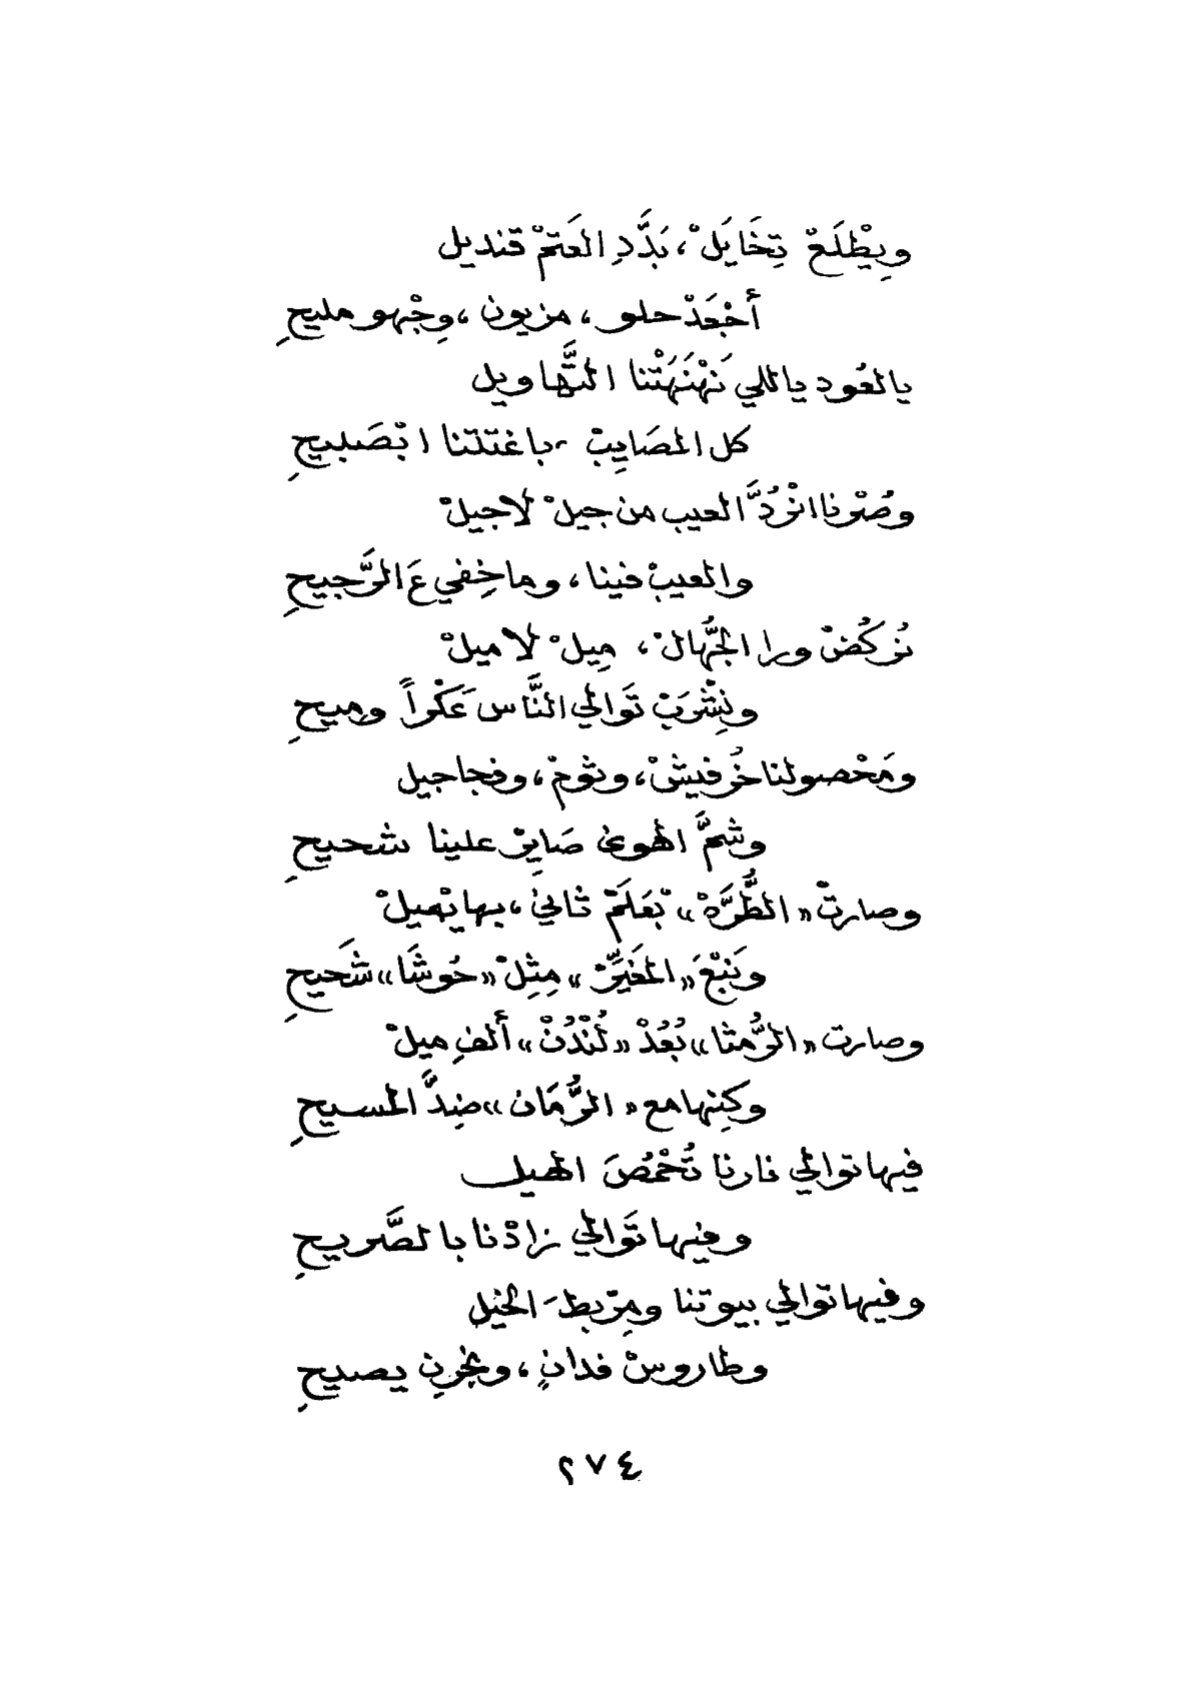 ويِطْلَعْ تِخَايَلْ، بَدَّدِ العَتَمْ قنديل
أجْعَدْ حلو، مزيون، وِجْهو مليحِ
يالعُود ياللي نَهْنَهَتْنا التَّهاويل
كل المصَايِبْ باغتتنا ابْصَبيحِ
وصُرْنا انْرُدَّ العيب من جيلْ لاجيلْ
والعيبْ فينا، وما خِفي عَ الرَّجيحِ
نُركُضْ ورا الجُّهالْ، مِيلْ لا ميلْ
ونِشْرَبْ تَوالي النَّاس عَكْراً وميح
ومَحْصولنا خُرفيشْ، وثومْ، وفجاجيل
وشمَّ الهوى صَايِرْ علينا شحيحِ
وصارتْ «الطُّرَّهْ» بْعَلَمْ ثاني، بها يْميلْ
ونَبْعَ «المغَيِّرْ» مِثِلْ «حُوشَا» شَحيحِ
وصارت «الرُّمثا» بُعُدْ «لُنْدُنْ» ألفِ ميلْ
وكِنها مع «الرُّمَان» ضِدَّ المسيحِ
فيها توالي نارنا تُحْمُصَ الهيل
وفيها تَوالي زادْنا بالصَّريحِ
وفيها توالي بيوتنا ومِرْبطَ الخيل
وطاروسْ فدانٍ، وبجُرنِ يصيحِ
٢٧٤